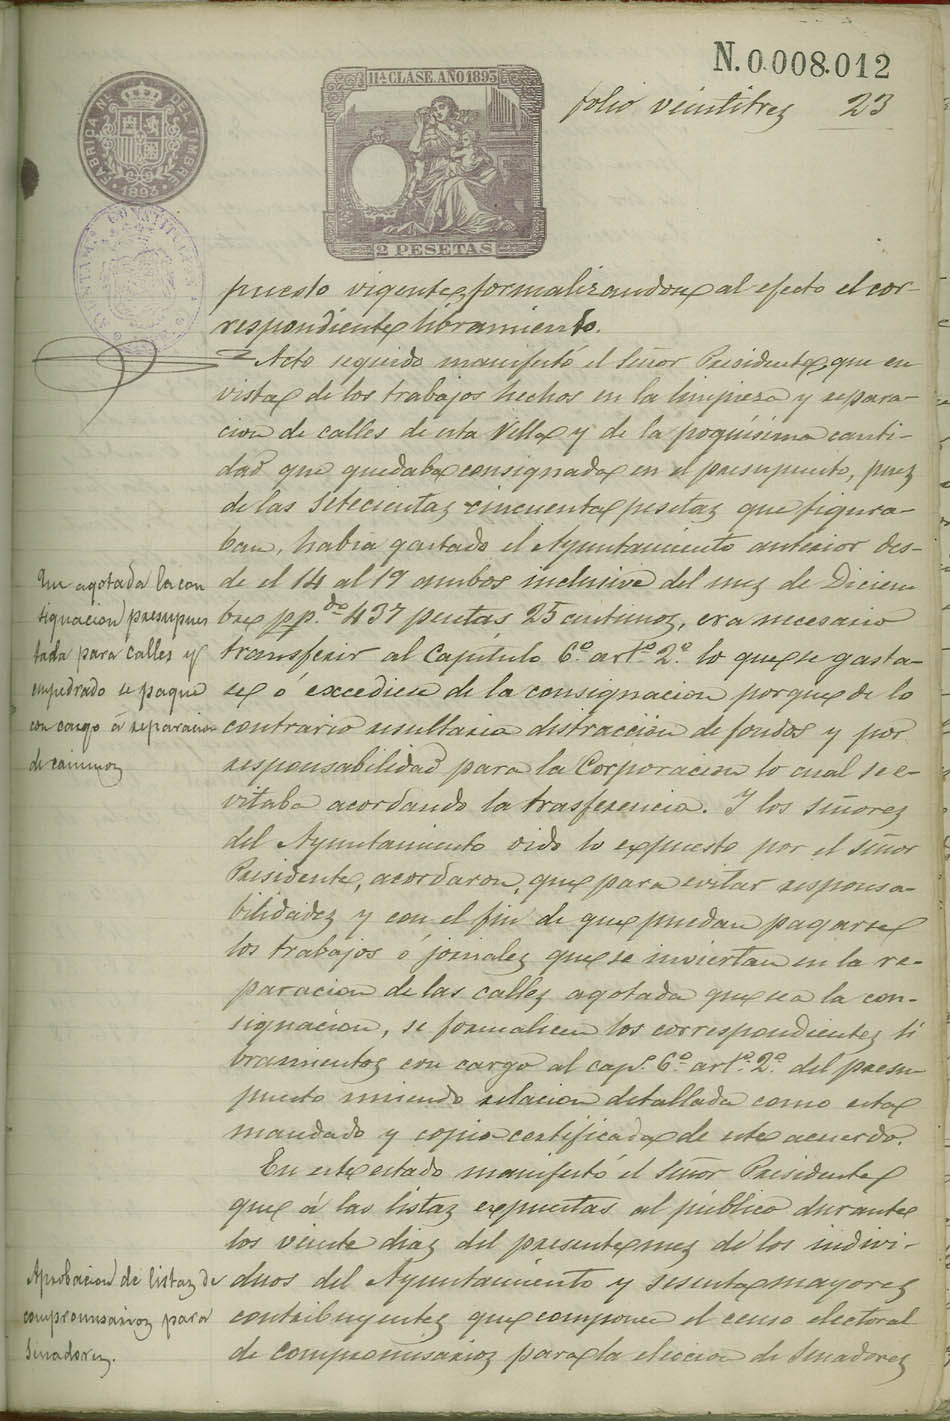 N. 0.008.012
folio veintitres 23
11ª CLASE. AÑO 1893
2 PESETAS
FABRICA Nº DEL TIMBRE
1893
CONSTITUC
puesto vigente, formalizandose al efecto el cor-
respondiente libramiento.
Acto seguido manifestó el Señor Presidente, que en
vista de los trabajos hechos en la limpieza y repara-
cion de calles de esta Villa y de la poquísima canti-
dad que quedaba consignada en el presupuesto, pues
de las setecientas cincuenta pesetas que figura-
ban, habia gastado el Ayuntamiento anterior des-
de el 14 al 19 ambos inclusive del mes de Diciem
bre pp.do 437 pesetas 25 centimos, era necesario
transferir al Capítulo 6º artº 2º lo que se gasta-
se ó excediese de la consignacion porque de lo
contrario resultaria distracción de fondos y por
responsabilidad para la Corporacion lo cual se e-
vitaba acordando la trasferencia. Y los Señores
del Ayuntamiento oido lo expuesto por el Señor
Presidente, acordaron, que para evitar responsa-
bilidades y con el fin de que puedan pagarse
los trabajos ó jornales que se inviertan en la re-
paracion de las calles agotada que sea la con-
signacion, se formalicen los correspondientes li
bramientos con cargo al cap.º 6º artº 2º del presu
puesto uniendo relacion detallada como esta
mandado y copia certificada de este acuerdo.
En este estado manifestó el Señor Presidente
que á las listas expuestas al público durante
los veinte dias del presente mes de los indivi-
duos del Ayuntamiento y sesenta mayores
contribuyentes que componen el censo electoral
de compromisarios para la eleccion de Senadores
Que agotada la con
signacion presupues
tada para calles y
empedrado se pague
con cargo á reparacion
de caminos
Aprobacion de listas de
compromisarios para
Senadores.